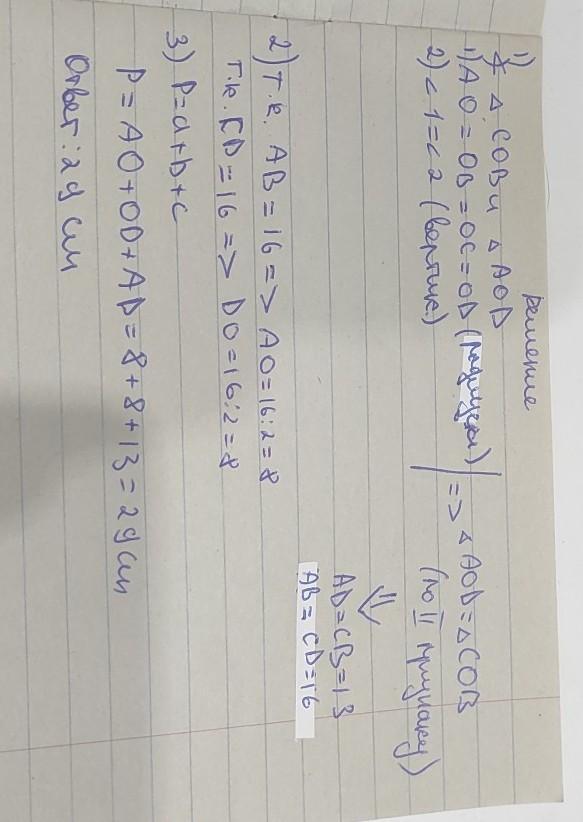 решение
1)
∗ △ COB и △ AOD
1) AO = OB = OC = OD (радиусы)
2) < 1 = < 2 (вертик.)
=> △ AOD = △ COB
(по II признаку)
⇓
AD = CB = 13
AB = CD = 16
2) т.к. AB = 16 => AO = 16:2 = 8
т.к. CD = 16 => DO = 16:2 = 8
3) P = a + b + c
P = AO + OD + AD = 8 + 8 + 13 = 29 см
Ответ: 29 см